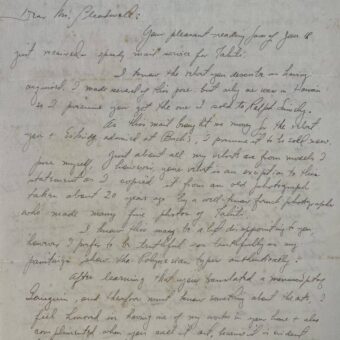 Dear Mr.
Your pleasant reading June 18
just received - speedy mail service for Tahiti.
I know the velvet you describe as having
acquired. I made several of this pose but only one was in Hawaii
so I presume you got the one I sold to Ralph
As this mail brought me money for the velvet
you admired at I presume it to be sold now.
Just about all my velvets are from models I
pose myself, however your velvet is an exception to this
statement as I copied it from an old photograph
taken about 20 years ago by a well-known french photographer
who made many fine photos of Tahiti.
I know this may be a bit disappointing to you,
however, I prefer to be truthful as truthfully as my
paintings show the Polynesian types authentically.
After learning that you translated a manuscript
Gauguin, and therefore must know something about the arts, I
feel honored in having one of my works in your home & also
complimented when you call it art, because it is evident